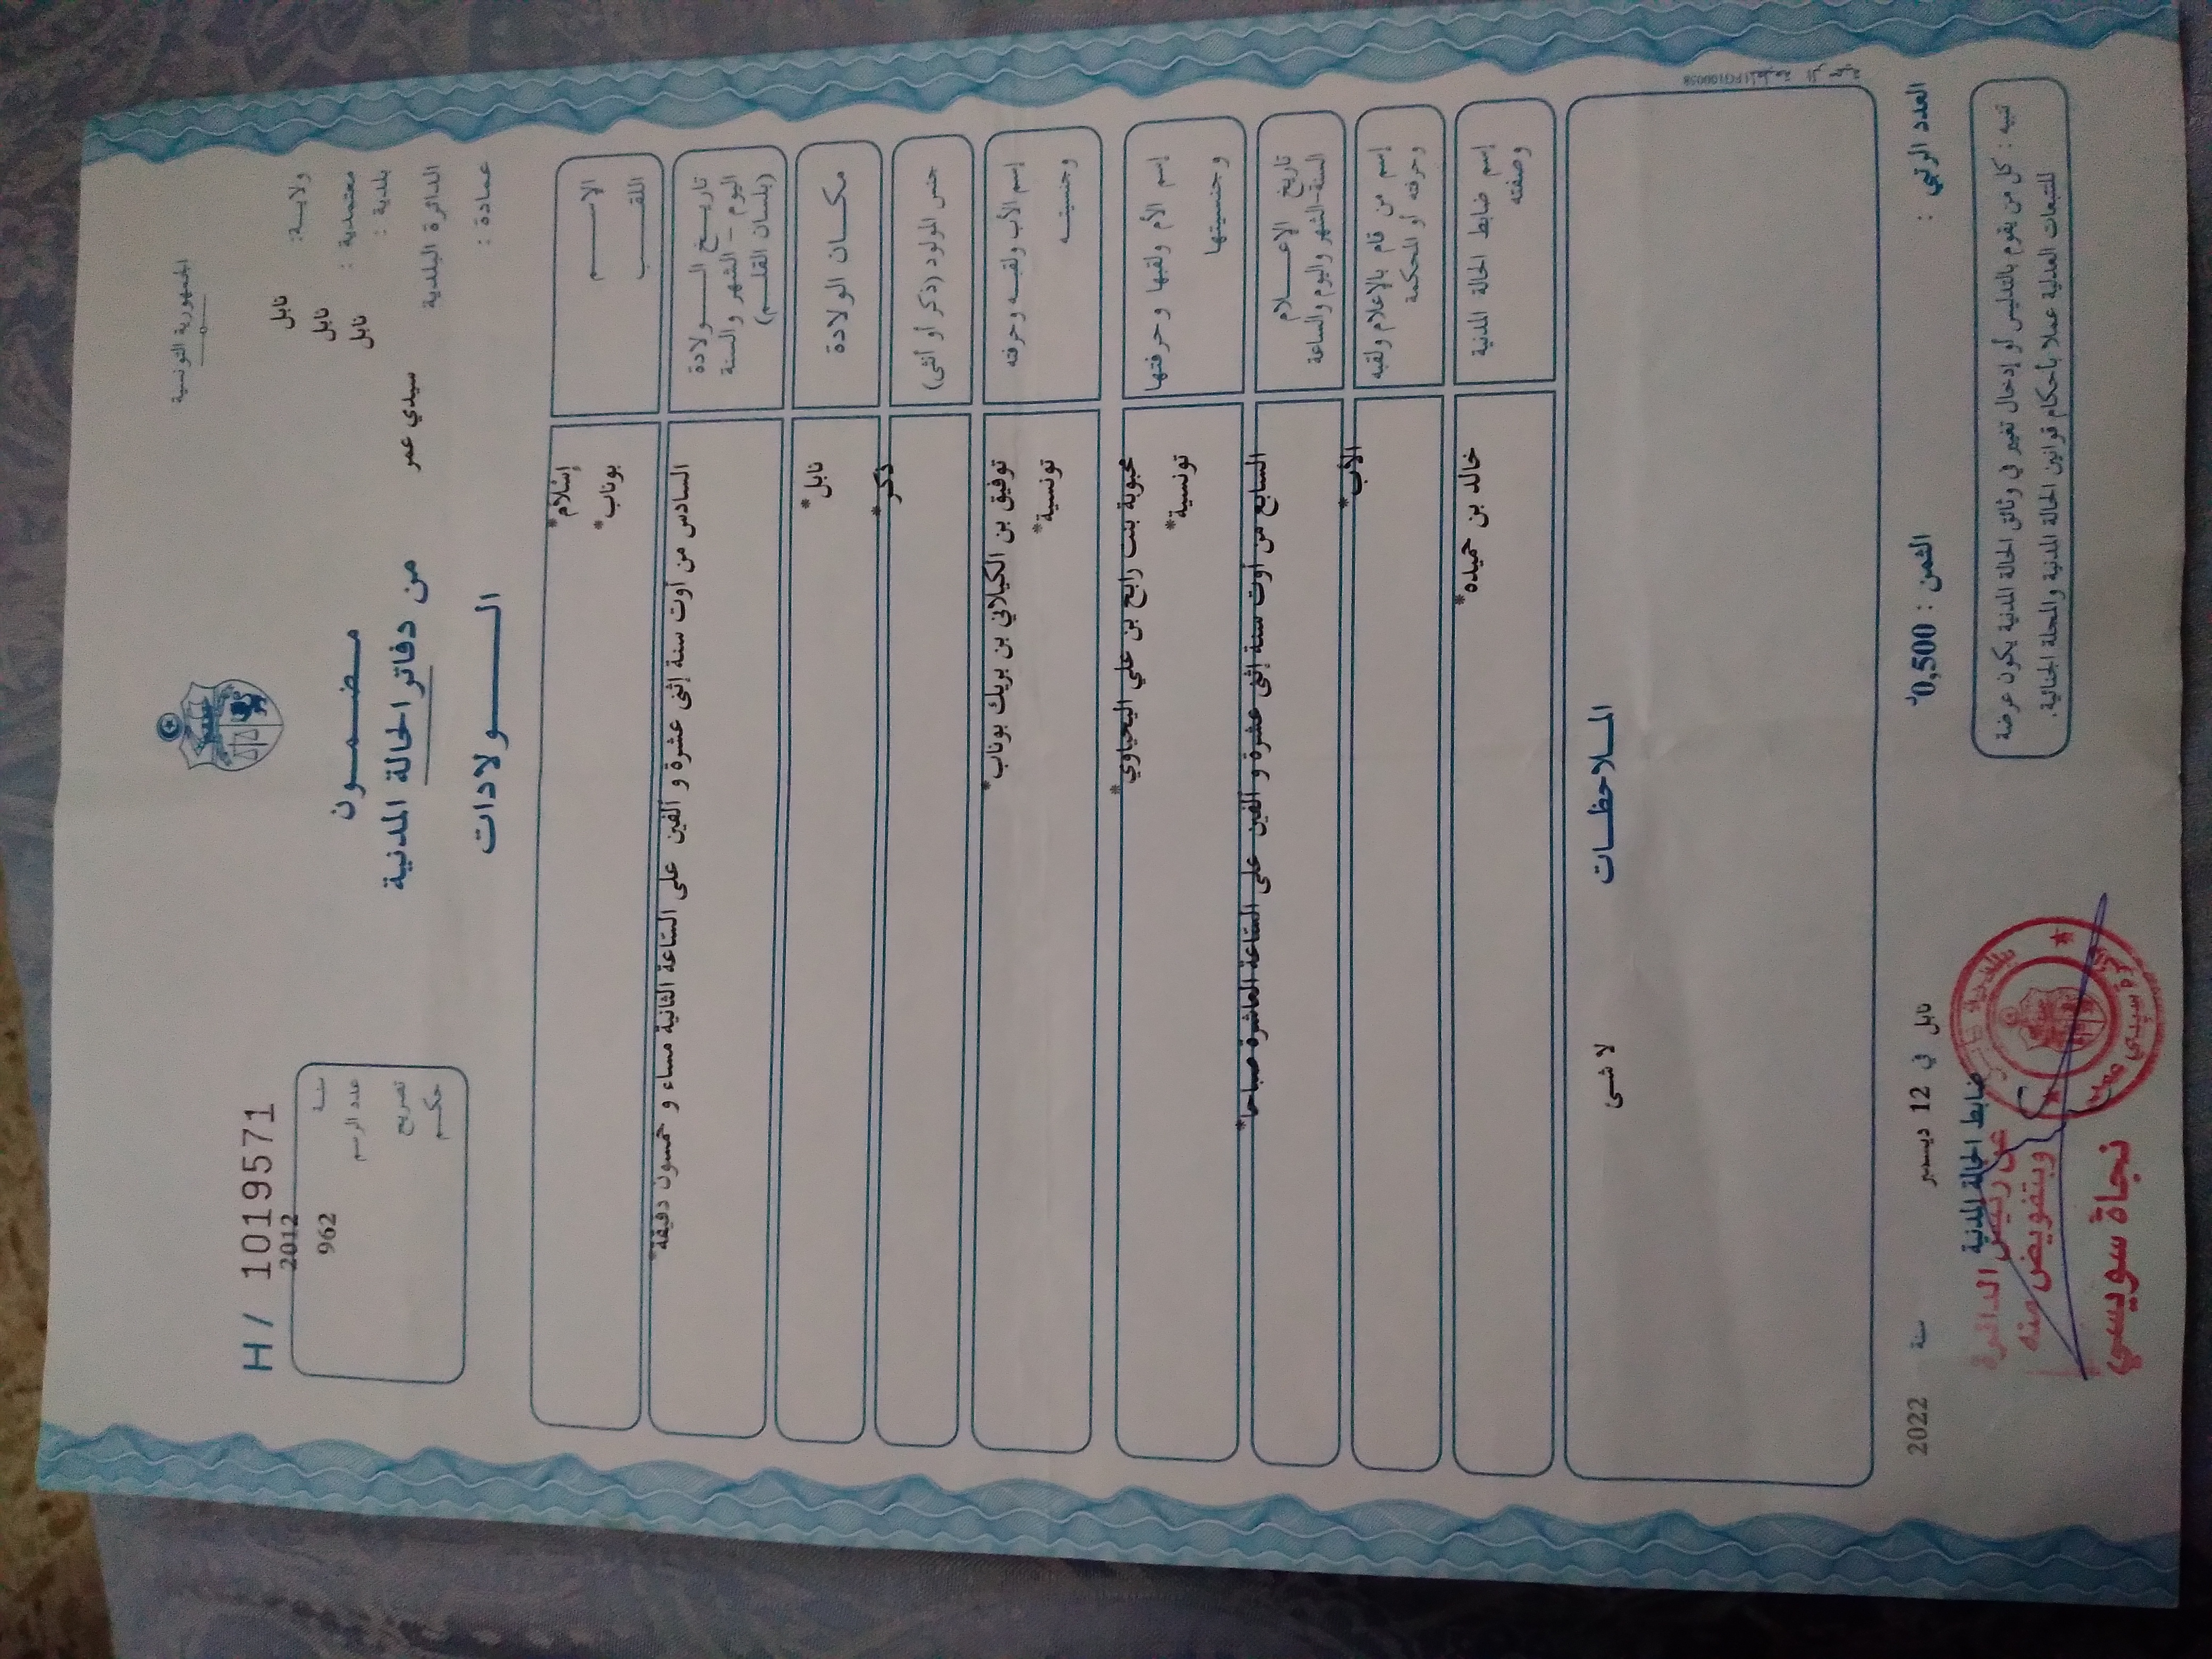 الجمهورية التونسية
ولاية: نابل
معتمدية : نابل
بلدية : نابل
الدائرة البلدية سيدي عمر
عمادة :
H / 1019571
سنة 2012
عدد الرسم 962
تصريح
حكم
مضمون
من دفاتر الحالة المدنية
الولادات
الاسم *إسلام*
اللقب *بوناب*
تاريخ الولادة
اليوم - الشهر والسنة
(بلسان القلم)
السادس من أوت سنة إثنى عشرة و ألفين على الساعة الثانية مساء و خمسون دقيقة*
مكان الولادة نابل*
جنس المولود (ذكر أو أنثى) ذكر*
إسم الأب ولقبه وحرفته توفيق بن الكيلاني بن بريك بوناب*
وجنسيته تونسية*
إسم الأم ولقبها وحرفتها محبوبة بنت رابح بن علي اليحياوي*
وجنسيتها تونسية*
تاريخ الإعلام
السنة-الشهر واليوم والساعة
السابع من أوت سنة إثنى عشرة و ألفين على الساعة العاشرة صباحا*
إسم من قام بالإعلام ولقبه
وحرفته أو المحكمة
الأب*
إسم ضابط الحالة المدنية
وصفته
خالد بن حميده*
الملاحظات
لا شى
العدد الرتبي :
الثمن : 0,500د
نابل في 12 ديسمبر سنة 2022
تنبيه : كل من يقوم بالتدليس أو إدخال تغيير في وثائق الحالة المدنية يكون عرضة
للتبعات العدلية عملا بأحكام قوانين الحالة المدنية والمجلة الجنائية.
ضابط الحالة المدنية
عن رئيس الدائرة
وبتفويض منه
نجاة سويسي